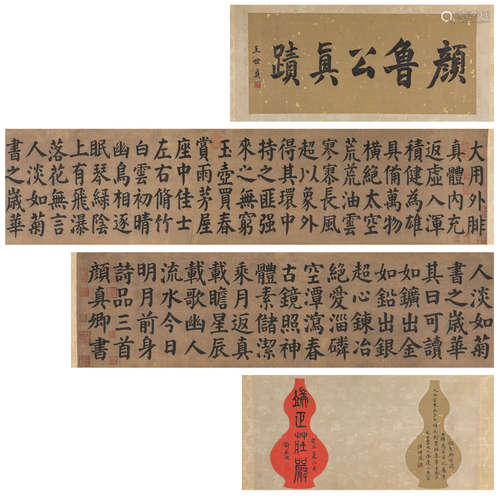 顏魯公眞蹟
王世貞
大用外腓
真體內充
返虛入渾
積健為雄
具備萬物
橫絕太空
荒荒油雲
寥寥長風
超以象外
得其環中
持之匪強
來之無窮
玉壺買春
賞雨茅屋
座中佳士
左右脩竹
白雲初晴
幽鳥相逐
眠琴綠陰
上有飛瀑
落花無言
人淡如菊
書之歲華
人淡如菊
書之歲華
其曰可讀
如鑛出金
如鉛出銀
超心鍊冶
絕愛淄磷
空潭瀉春
古鏡照神
體素儲潔
乘月返真
載瞻星辰
載歌幽人
流水今日
明月前身
詩品三首
顏真卿書
端正莊嚴